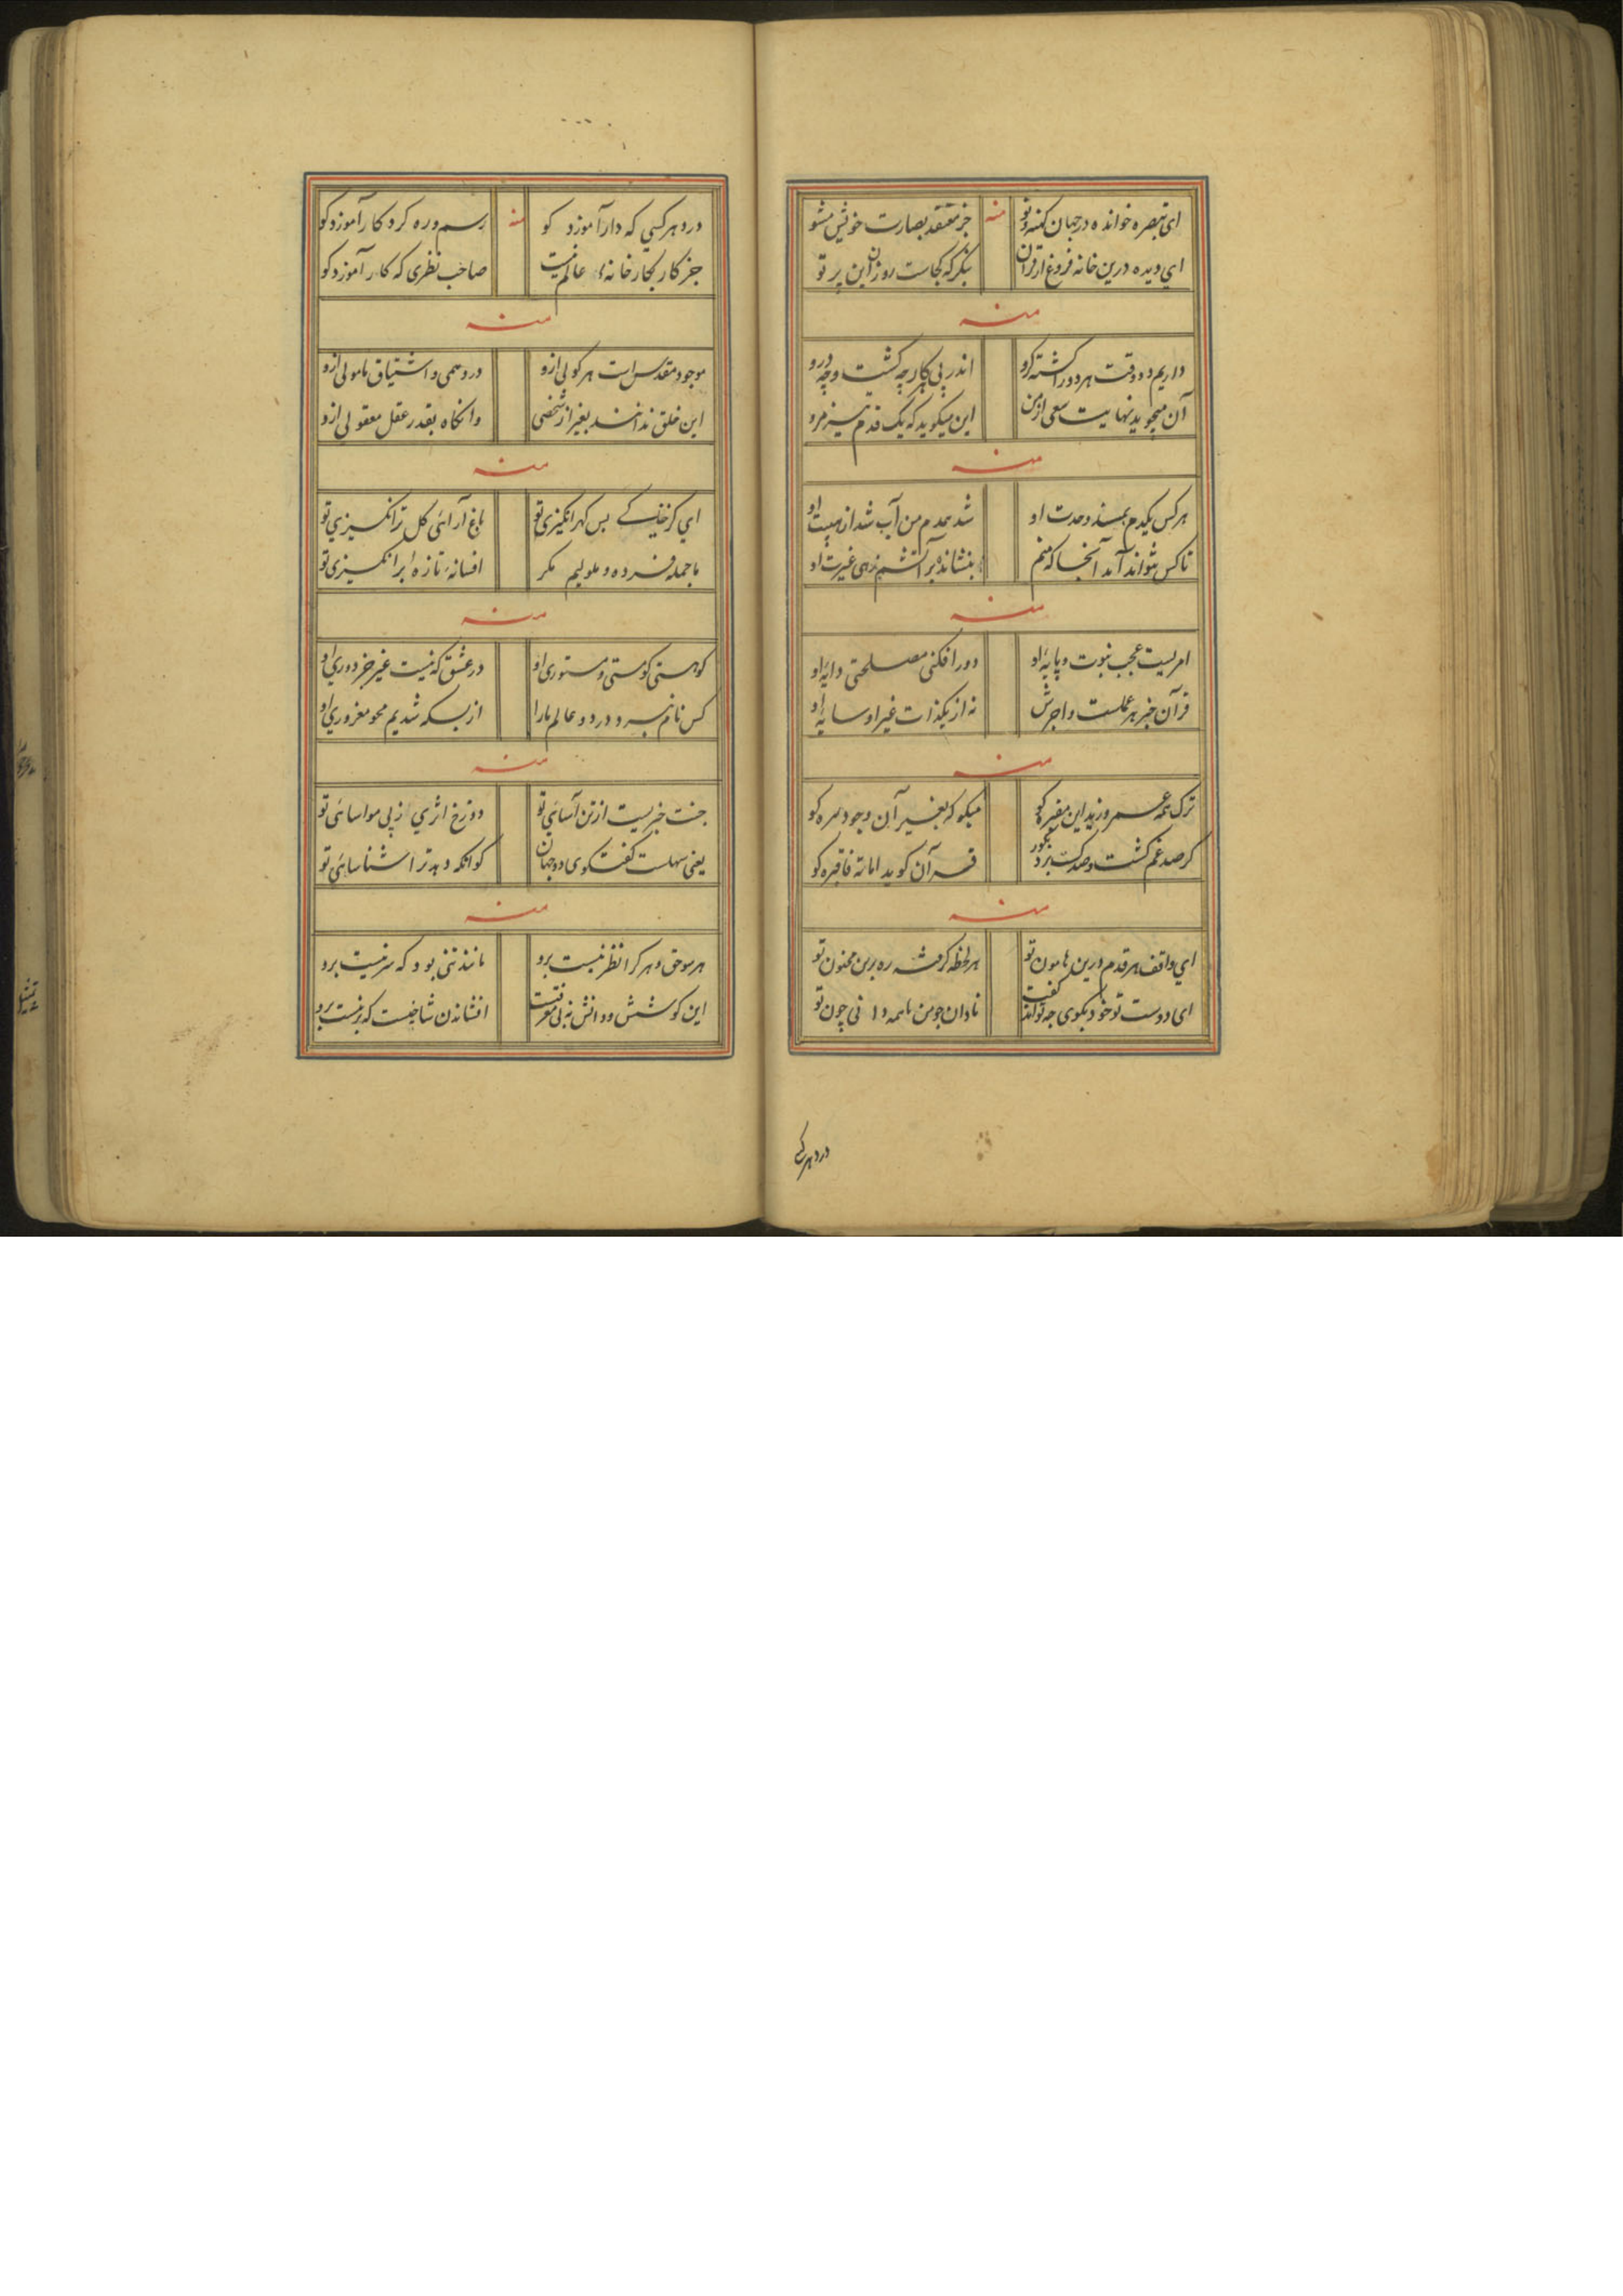 ای تبصره خوانده در جهان کهنه و نو
منه
جز معتقد بصارت خویش مشو
ای دیده درین خانه فروغ از قرآن
بنگر که کجاست روزن این پرتو
منه
داریم دو وقت هر دو را کشته کرو
اندر پی کار چه کشت و چه درو
آن میجوید نهایت سعی از من
این میکوید که یک قدم نیز مرو
منه
هرکس یکدم بمسند وحدت او
شد همدم من آب شد از هیبت او
تا کس نتواند آمد آنجا که منم
بنشانده بر آتشم زهی غیرت او
منه
امریست عجب نبوت و پایه او
دور افکنی مصلحتی دایه او
قرآن خبر هر عملست و اجرش
نه از یکذات غیر او سایه او
منه
ترک همه عمر و زید این مقبره کو
میکو که بغیر آن وجود سره کو
کر صد غم کشت وصد کست برد بکور
قرآن کوید اماته فاقبره کو
منه
ای واقف هر قدم درین هامون تو
هر لحظه کرفته ره برین مجنون تو
ای دوست تو خود بکوی چه تواند کفت
نادان چو من با همه دانی چون تو
درد هر کسی
درد هر کسی که دار آموزد کو
منه
رسم و ره کرد کار آموزد کو
جز کار بکارخانه عالم نیست
صاحب نظری که کار آموزد کو
منه
موجود مقدس است هر کولی ازو
در وهمی و اشتیاق مامولی ازو
این خلق ندانند بغیر از شخصی
وانکاه بقدر عقل معقولی ازو
منه
ای کز خاک بس کهر انکیزی تو
باغ آرائی کل تر انکیزی تو
ما جمله فسرده و ملولیم مکر
افسانه تازه برانکیزی تو
منه
کو هستی کو مستی و مستوری او
در عشق که نیست غیر جز دوری او
کس نام نبرد در دو عالم ما را
از بسکه شدیم محو مغروری او
منه
جنت خبریست از تن آسائی تو
دوزخ اثری از پی مواسائی تو
یعنی سهلست کفتکوی دو جهان
کو آنکه دهد ترا شناسائی تو
منه
هر سو حق و هر کرا نظر نیست برو
مانند تنی بود که سر نیست برو
این کوشش و دانش نه بی معرفت
افشاندن شاخیست که بر نیست برو